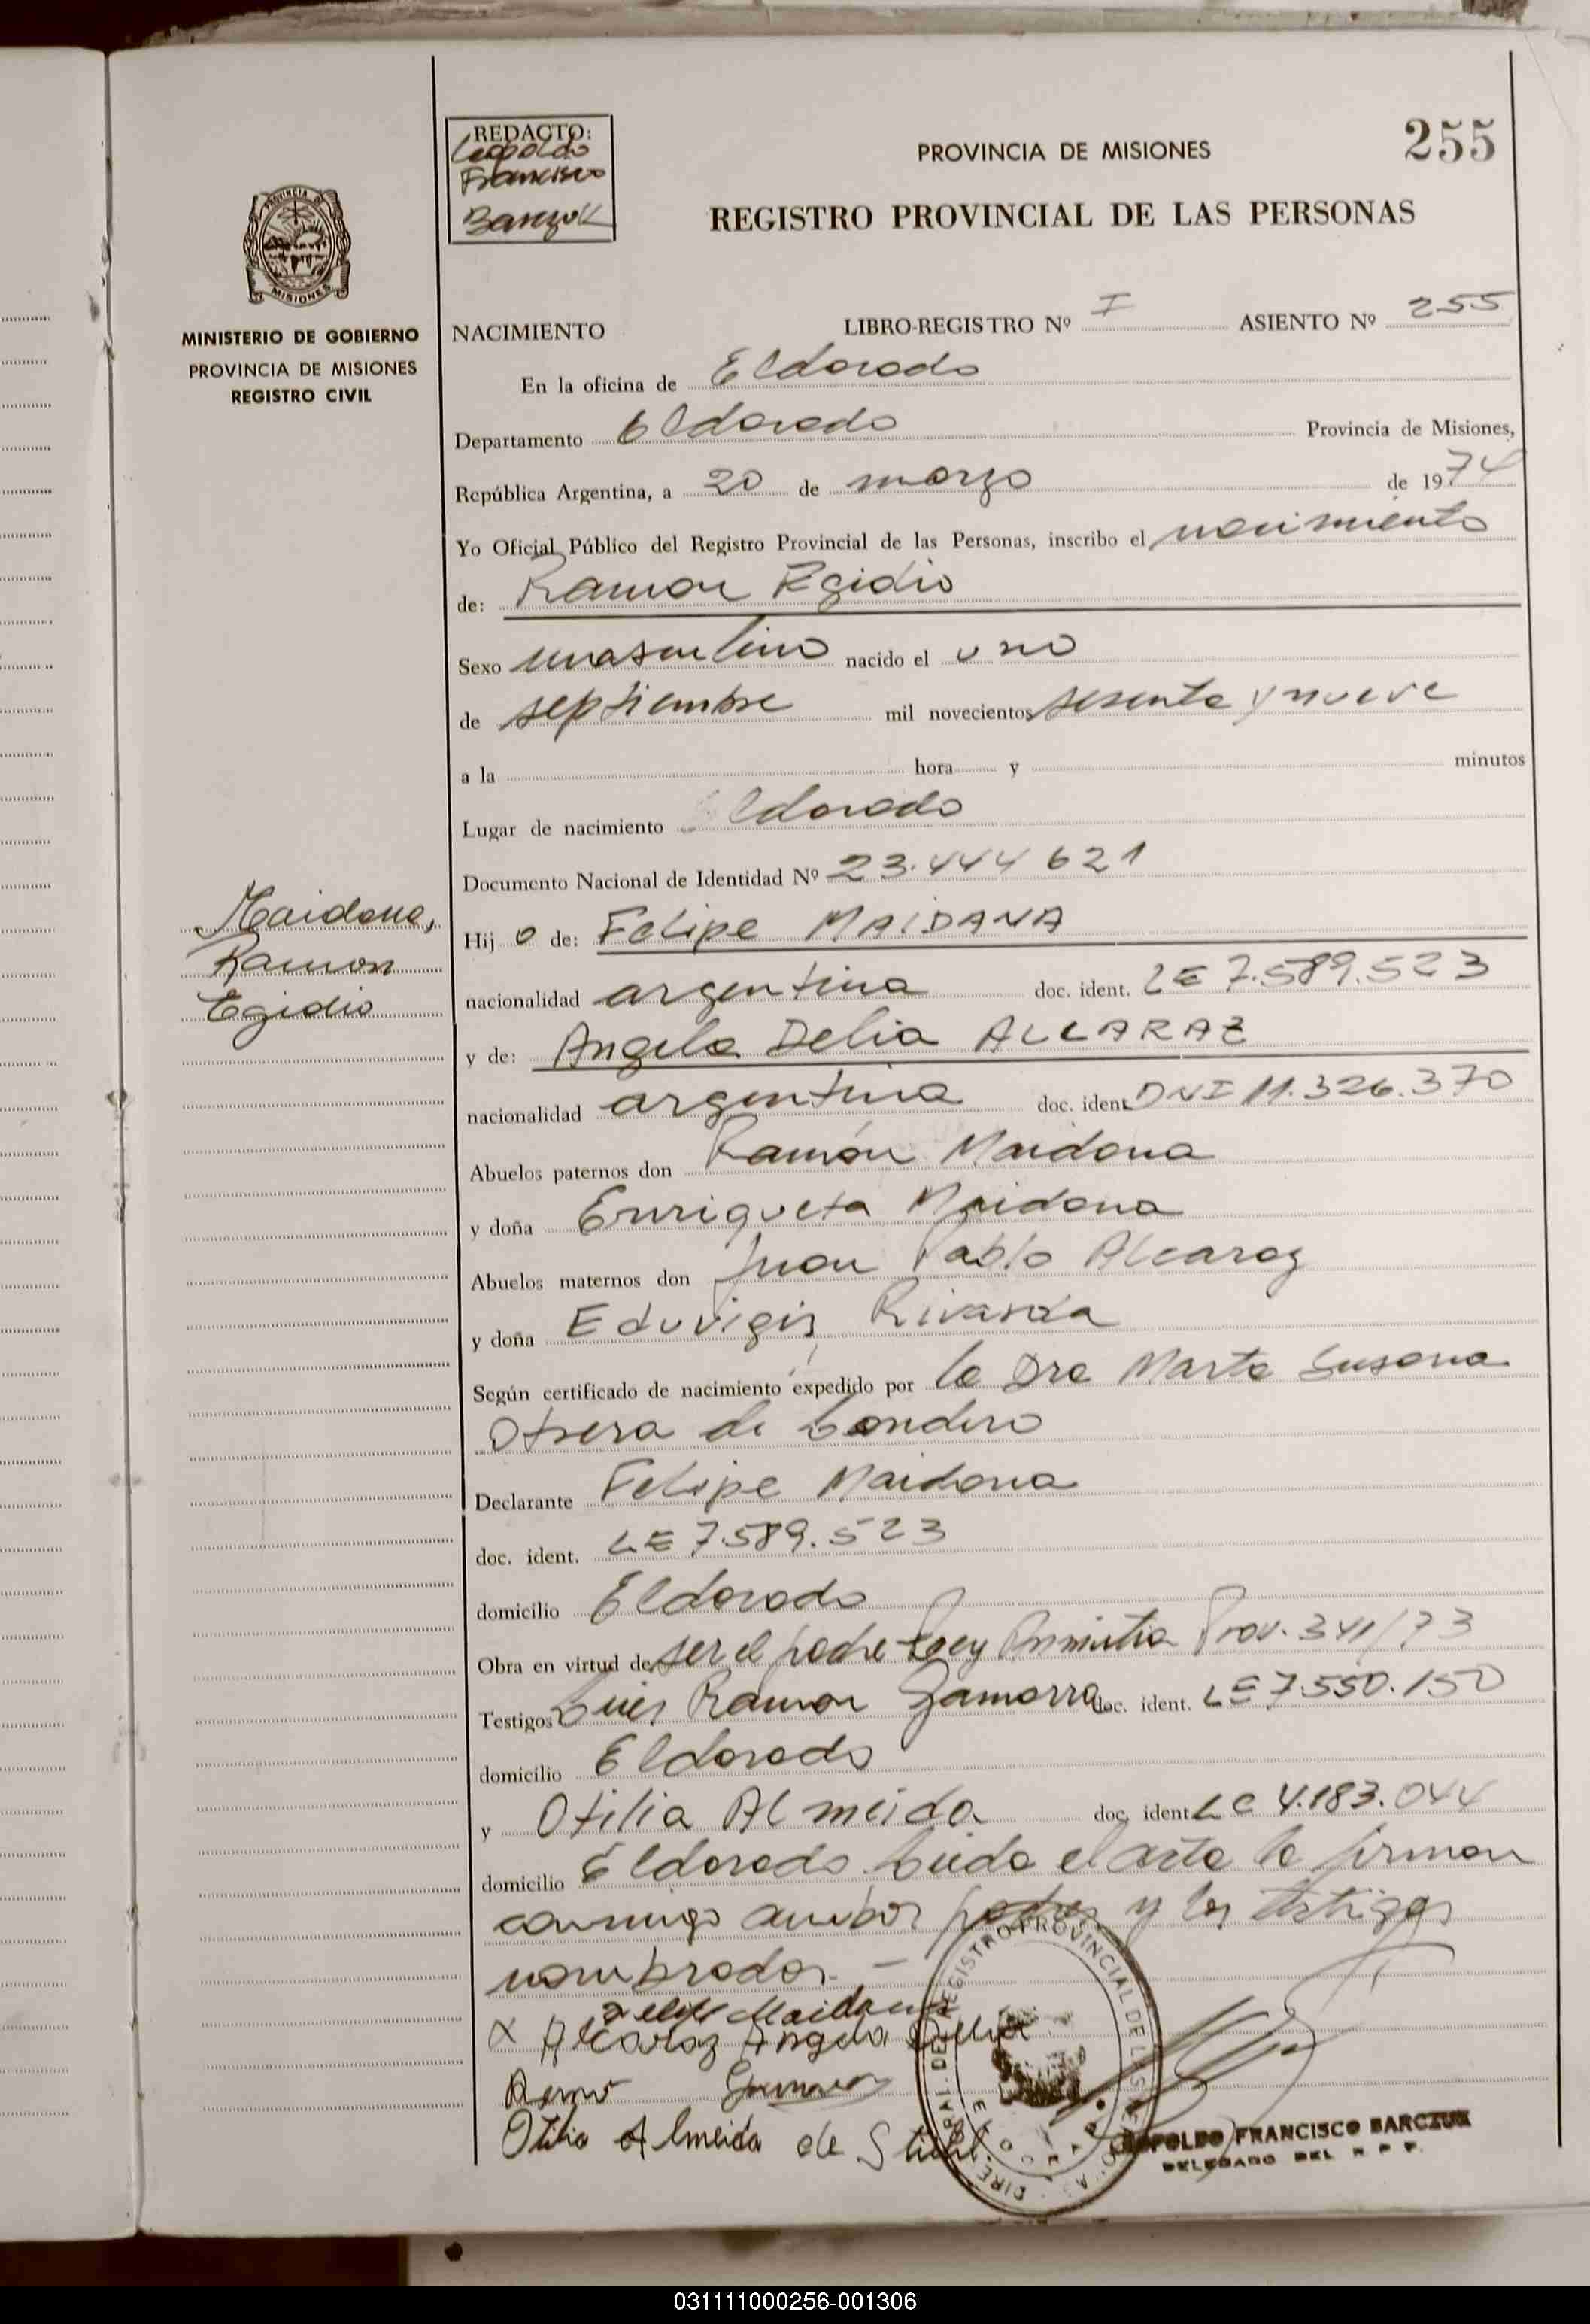 255
REDACTO:
Leopoldo
Francisco
Barczuk
PROVINCIA DE MISIONES
REGISTRO PROVINCIAL DE LAS PERSONAS
PROVINCIA DE
MISIONES
MINISTERIO DE GOBIERNO
PROVINCIA DE MISIONES
REGISTRO CIVIL
NACIMIENTO LIBRO-REGISTRO Nº I ASIENTO Nº 255
En la oficina de Eldorado
Departamento Eldorado Provincia de Misiones,
República Argentina, a 20 de marzo de 1974
Yo Oficial Público del Registro Provincial de las Personas, inscribo el nacimiento
de: Ramon Egidio
Sexo masculino nacido el uno
de septiembre mil novecientos sesenta y nueve
a la hora y minutos
Lugar de nacimiento Eldorado
Documento Nacional de Identidad Nº 23.444 621
Maidana,
Ramon
Egidio
Hij o de: Felipe MAIDANA
nacionalidad argentina doc. ident. LE 7.589.523
y de: Angela Delia ALCARAZ
nacionalidad argentina doc. ident. DNI 11.326.370
Abuelos paternos don Ramón Maidana
y doña Enriqueta Maidana
Abuelos maternos don Juan Pablo Alcaraz
y doña Eduvigis
Según certificado de nacimiento expedido por la Dra Marta Susana
de
Declarante Felipe Maidana
doc. ident. LE 7.589.523
domicilio Eldorado
Obra en virtud de ser el padre Ley Amnistia Prov. 341/73
Testigos Luis Ramon Zamorra doc. ident. LE 7.550.150
domicilio Eldorado
y Otilia Almeida doc. ident. LC 4.183.044
domicilio Eldorado. Leida el acta la firman
conmigo ambos padres y los testigos
nombrados. —
Felipe Maidana
x Alcaraz Angela Delia
Otilia Almeida de
REGISTRO PROVINCIAL DE LAS PERSONAS
LEOPOLDO FRANCISCO BARCZUK
DELEGADO DEL R P P.
031111000256-001306